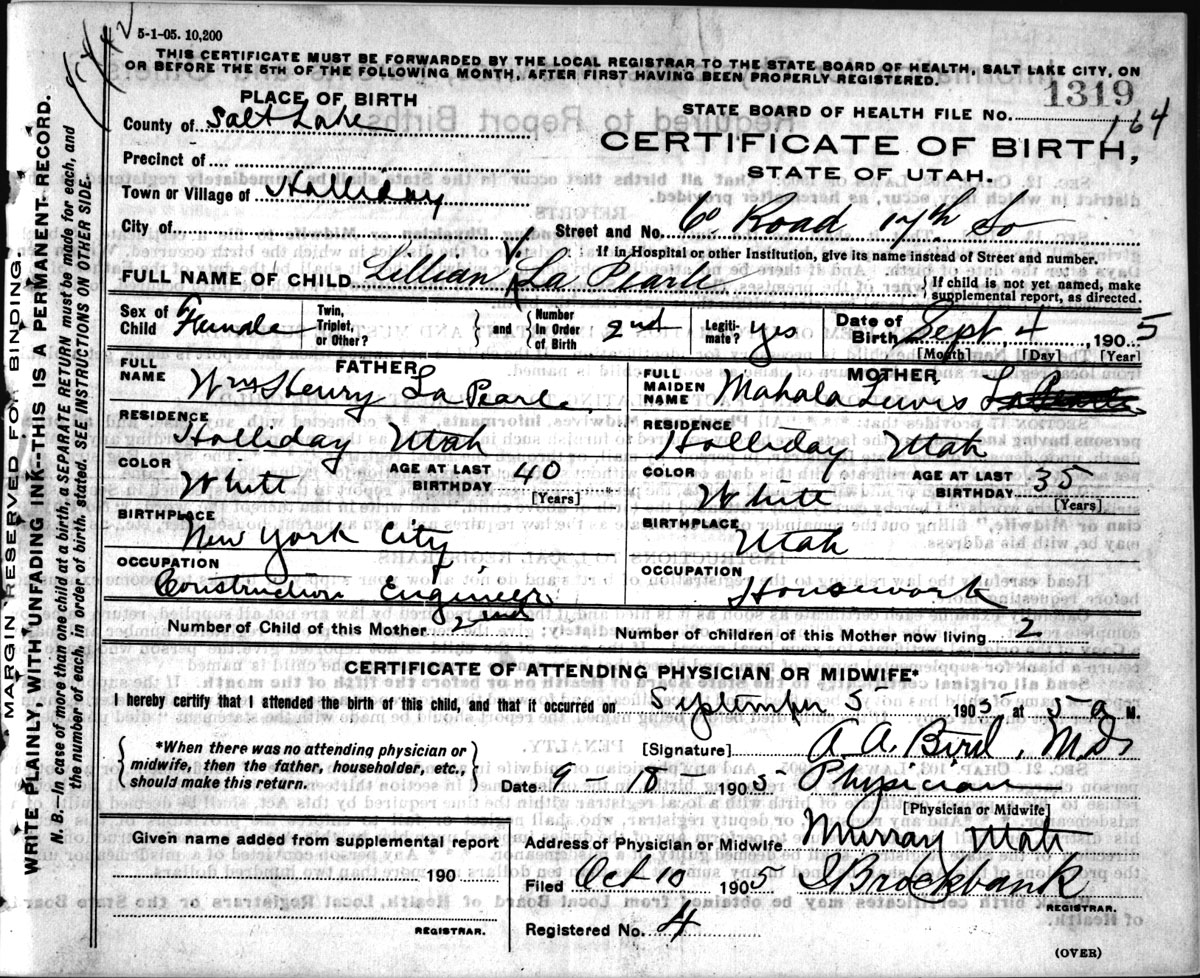 5-1-05. 10,200
THIS CERTIFICATE MUST BE FORWARDED BY THE LOCAL REGISTRAR TO THE STATE BOARD OF HEALTH, SALT LAKE CITY, ON
OR BEFORE THE 5TH OF THE FOLLOWING MONTH, AFTER FIRST HAVING BEEN PROPERLY REGISTERED.
PLACE OF BIRTH
County of Salt Lake
Precinct of
Town or Village of Holliday
City of
STATE BOARD OF HEALTH FILE NO. 1319
164
CERTIFICATE OF BIRTH,
STATE OF UTAH.
Street and No. Co Road 17th So
If in Hospital or other Institution, give its name instead of Street and number.
FULL NAME OF CHILD Lillian La Pearle
{ If child is not yet named, make
supplemental report, as directed.
Sex of Child Female
Twin, Triplet, or Other? } and { Number in Order of Birth 2nd
Legitimate? yes
Date of Birth Sept 4 1905
[Month] [Day] [Year]
FATHER
FULL NAME Wm Henry La Pearle
RESIDENCE
Holliday Utah
COLOR White
AGE AT LAST BIRTHDAY 40
[Years]
BIRTHPLACE
New York City
OCCUPATION
Construction Engineer
MOTHER
FULL MAIDEN NAME Mahala Lewis
RESIDENCE
Holliday Utah
COLOR White
AGE AT LAST BIRTHDAY 35
[Years]
BIRTHPLACE
Utah
OCCUPATION
Housework
Number of Child of this Mother 2nd
Number of children of this Mother now living 2
CERTIFICATE OF ATTENDING PHYSICIAN OR MIDWIFE*
I hereby certify that I attended the birth of this child, and that it occurred on September 5 1905 at 5 a M.
{ *When there was no attending physician or
midwife, then the father, householder, etc.,
should make this return. }
[Signature] A. A. Bird, Md
Date 9-18-1905 Physician
[Physician or Midwife]
Given name added from supplemental report
190
REGISTRAR.
Address of Physician or Midwife Murray Utah
Filed Oct 10 1905 Brockbank
REGISTRAR.
Registered No. 4
(OVER)
MARGIN RESERVED FOR BINDING.
WRITE PLAINLY, WITH UNFADING INK--THIS IS A PERMANENT RECORD.
N. B.--In case of more than one child at a birth, a SEPARATE RETURN must be made for each, and
the number of each, in order of birth, stated. SEE INSTRUCTIONS ON OTHER SIDE.